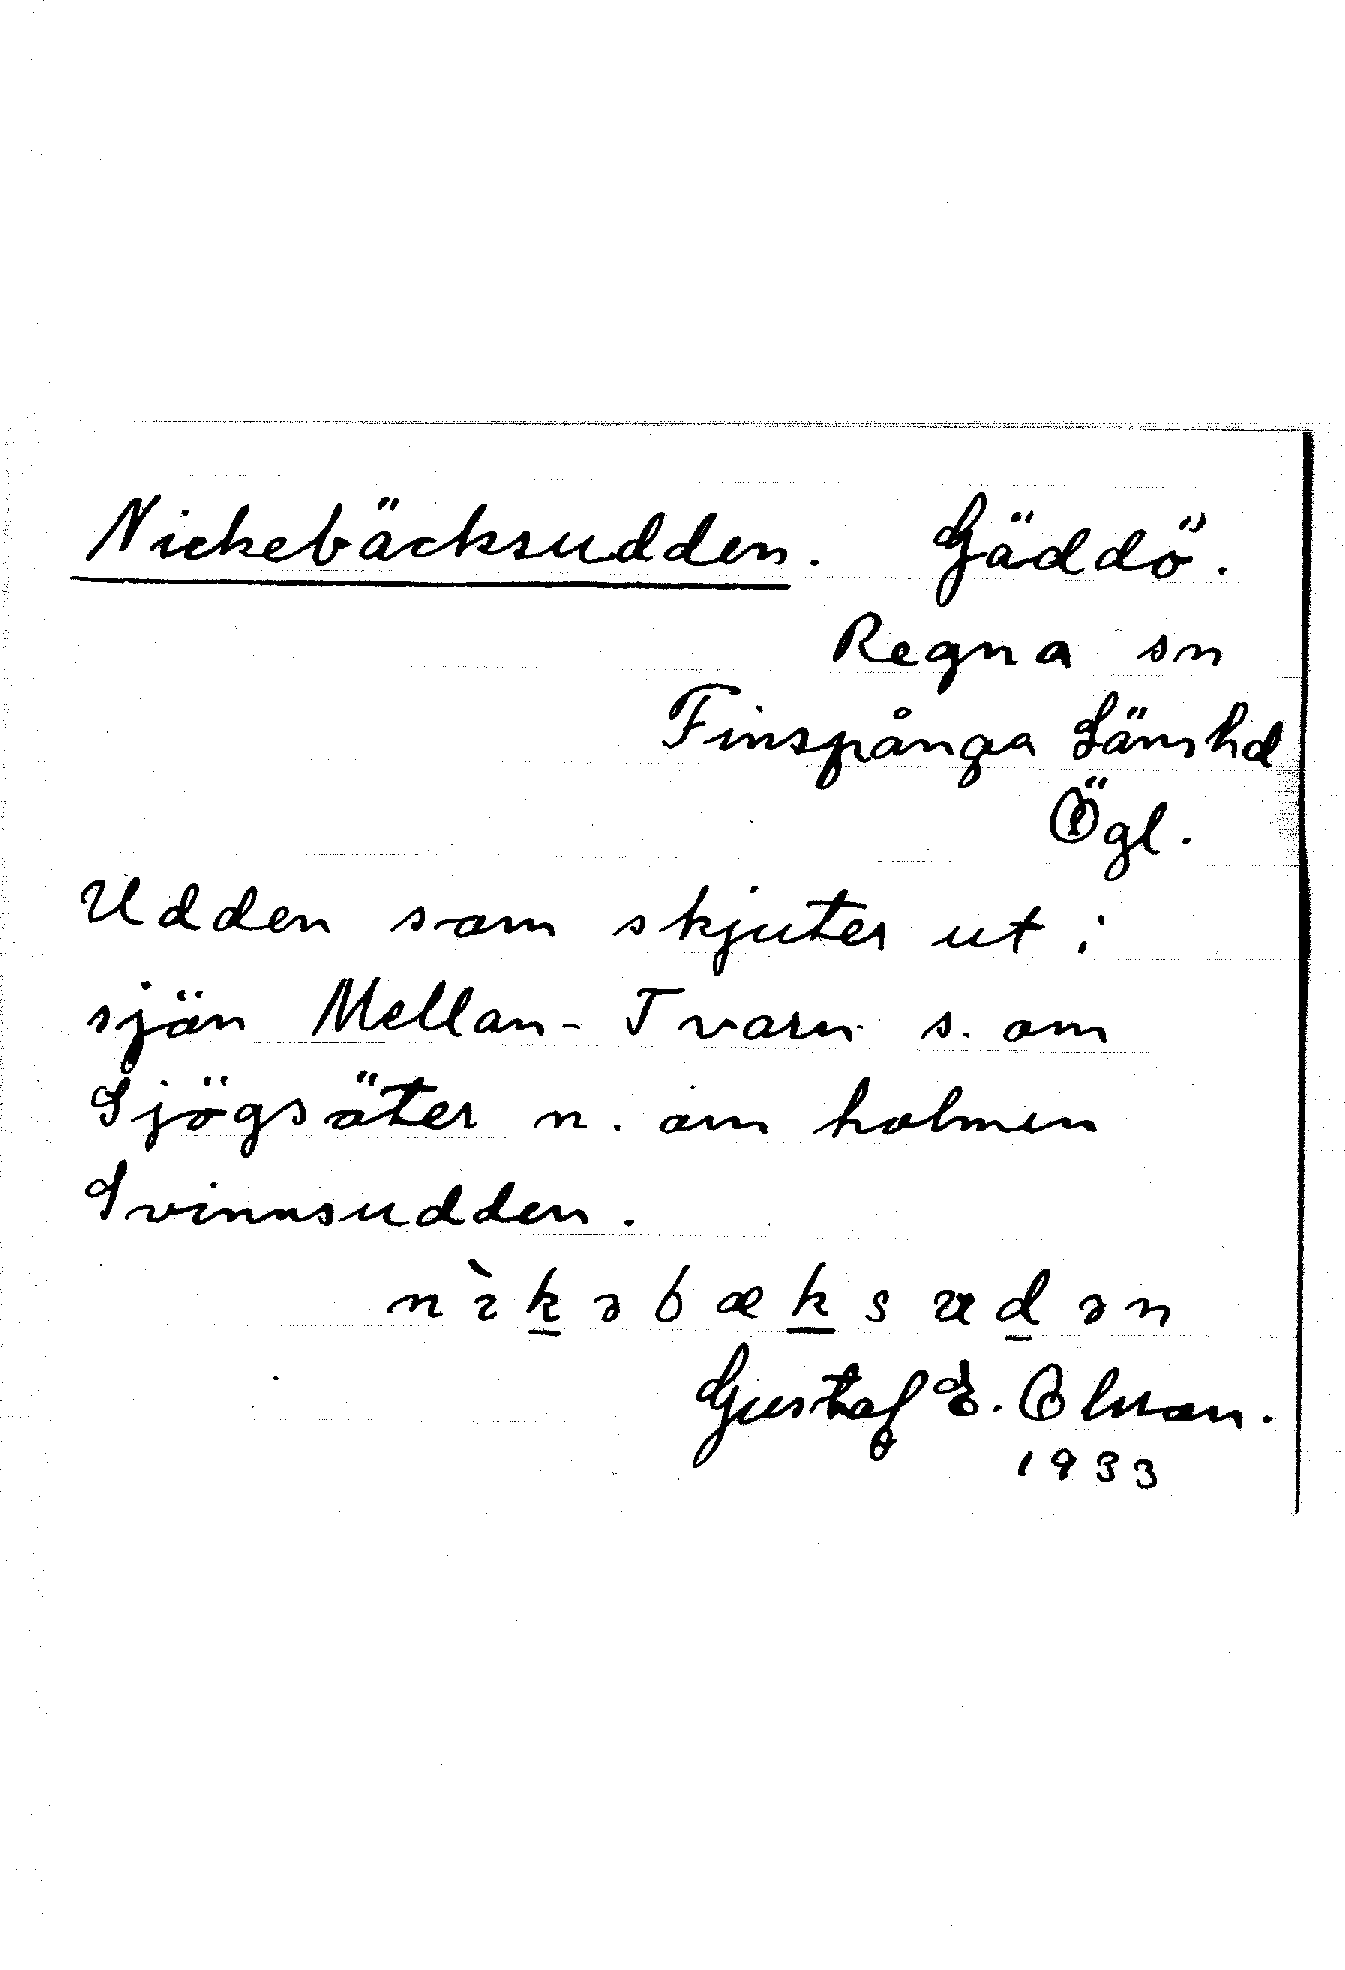 Nickebäcksudden. Gäddö.
Regna sn
Finspånga Länshd
Ögl.
Udden som skjuter ut i
sjön Mellan-Tvarn s. om
Sjögsäter n. om holmen
Svinnsudden.
nìkəbæksudən
Gustaf E. Olsson.
1933